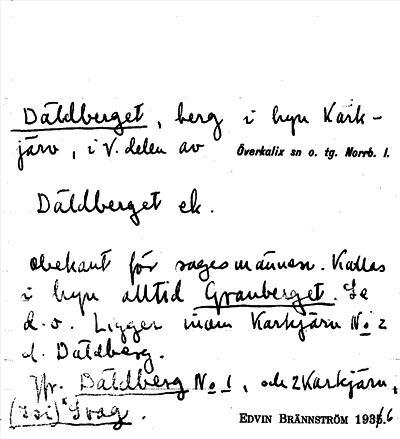 Däldberget, berg i byn Kark-
järv, i V. delen av Överkalix sn o. tg. Norrb. l.
Däldberget ek.
obekant för sagesmännen. Kallas
i byn alltid Granberget. Se
d. o. Ligger inom Karkjärv No 2
d. Däldberg.
Jfr. Däldberg No 1, och 2 Karkjärv,
Svag.
EDVIN BRÄNNSTRÖM 1936